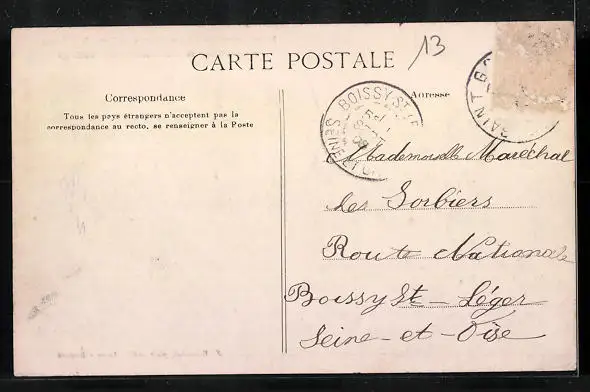 CARTE POSTALE
13
Correspondance
Tous les pays étrangers n'acceptent pas la
correspondance au recto, se renseigner à la Poste
Adresse
BOISSY ST
SEINE
Mademoiselle Maréchal
Les Sorbiers
Route Nationale
Boissy St - Léger
Seine - et - Oise